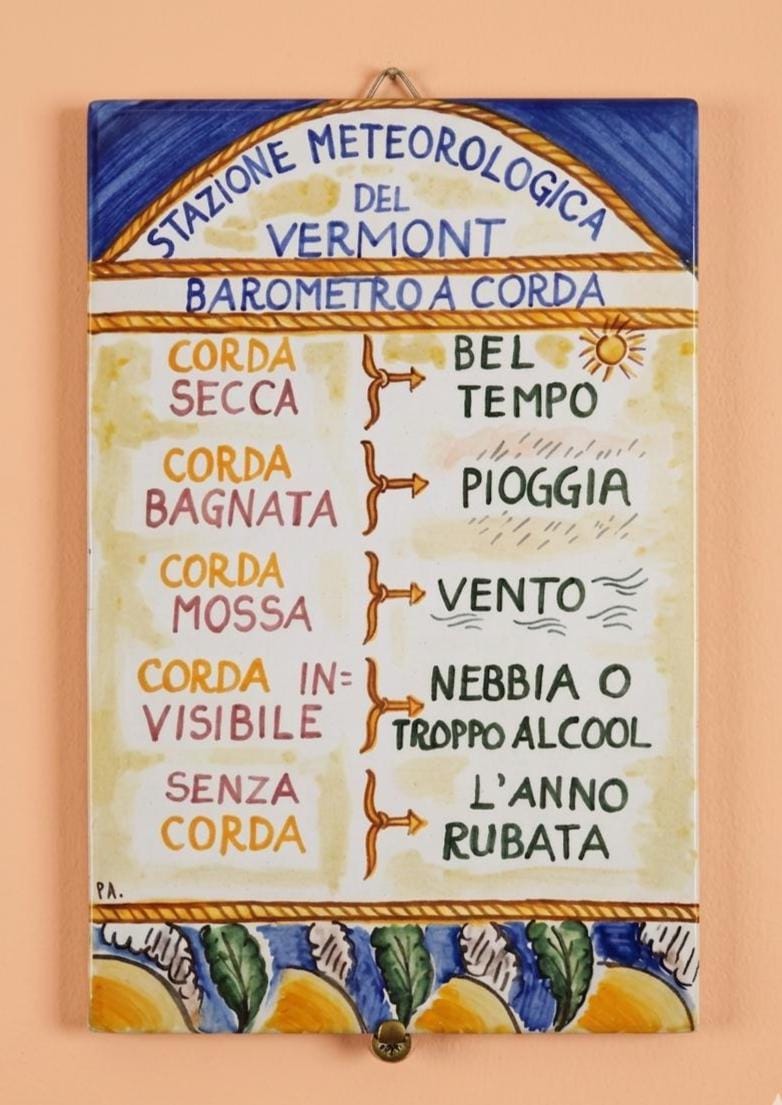 STAZIONE METEOROLOGICA
DEL
VERMONT
BAROMETRO A CORDA
CORDA
SECCA
BEL
TEMPO
CORDA
BAGNATA
PIOGGIA
CORDA
MOSSA
VENTO
CORDA IN=
VISIBILE
NEBBIA O
TROPPO ALCOOL
SENZA
CORDA
L'ANNO
RUBATA
PA.